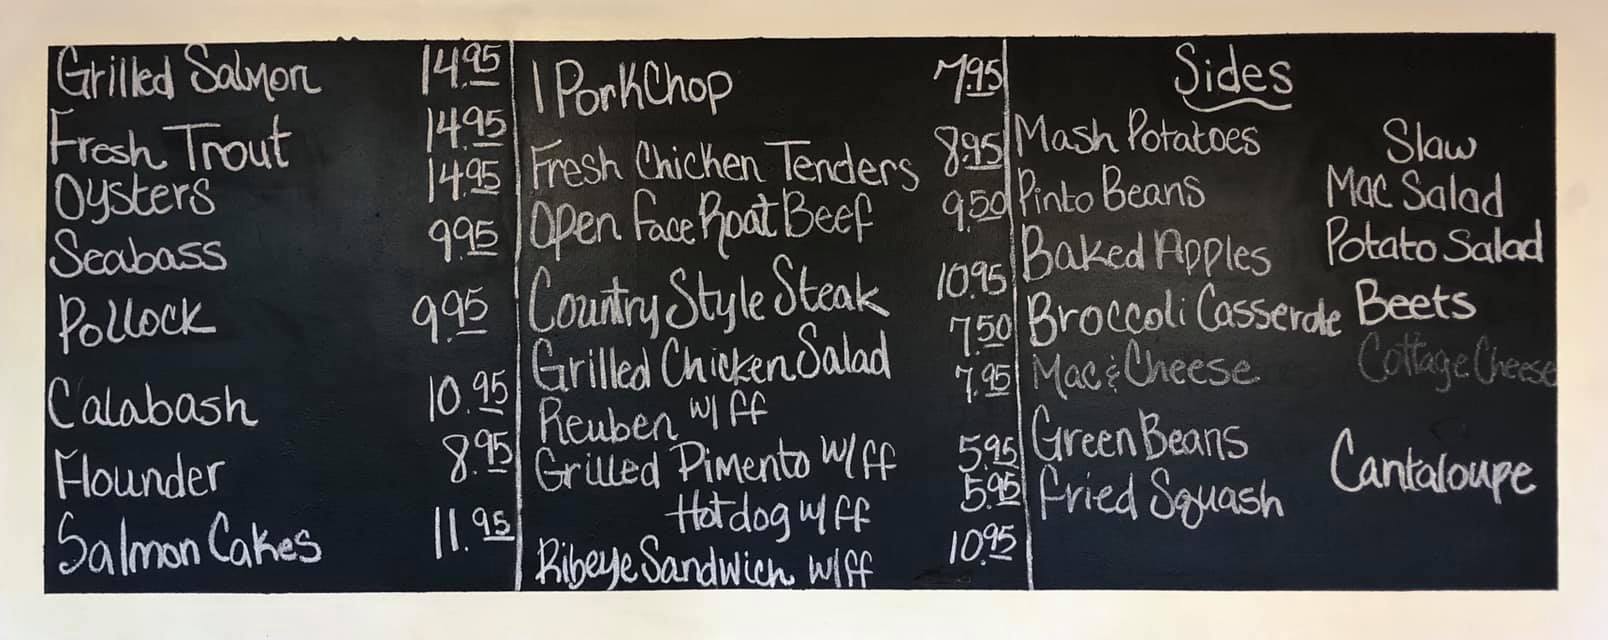 Grilled Salmon 14.95
Fresh Trout 14.95
Oysters 14.95
Seabass 9.95
Pollock 9.95
Calabash 10.95
Flounder 8.95
Salmon Cakes 11.95
1 Pork Chop 7.95
Fresh Chicken Tenders 8.95
Open Face Roat Beef 9.50
Country Style Steak 10.95
Grilled Chicken Salad 7.50
Reuben w/ ff 7.95
Grilled Pimento w/ ff 5.95
Hotdog w/ ff 5.95
Ribeye Sandwich w/ff 10.95
Sides
Mash Potatoes
Pinto Beans
Baked Apples
Broccoli Casserole
Mac & Cheese
Green Beans
Fried Squash
Slaw
Mac Salad
Potato Salad
Beets
Cottage Cheese
Cantaloupe